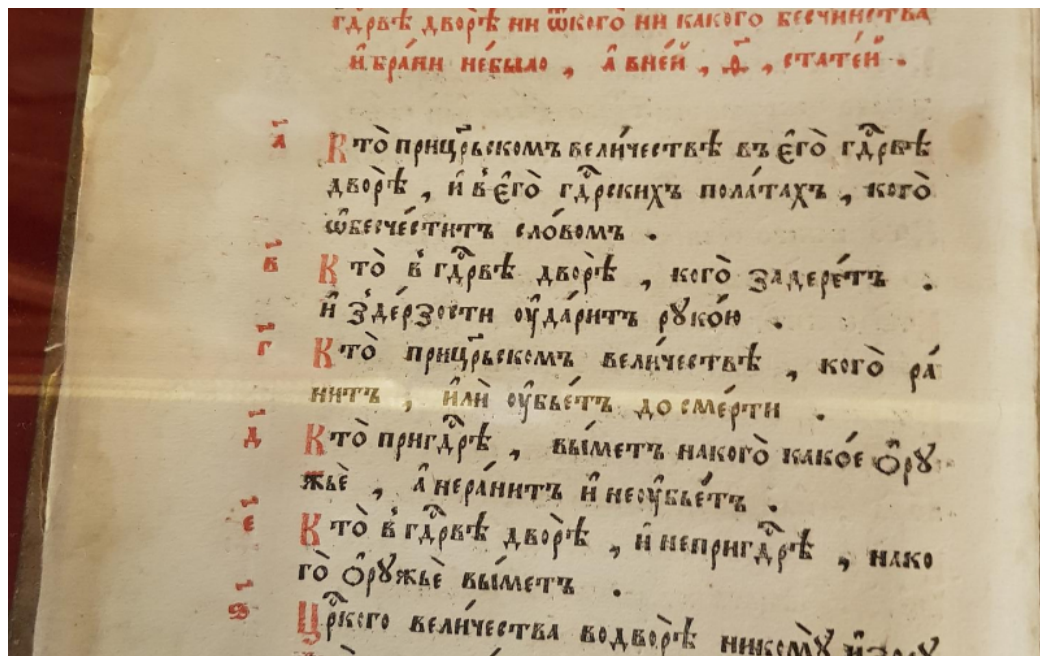 гдⷭ҇рвѣ дворѣ̀ ни ѿкого ни какого бесчинства
и҆бра́ни не́было , а҆ вне́й , ѳ҃ , стате́й .
а҃ Кто̀ прицрⷭ҇ьскомъ вели́чествѣ въ є҆го̀ гдⷭ҇рвѣ
дворѣ̀ , и҆ в є҆го̀ гдⷭ҇рскихъ пола́тахъ , кого̀
ѡ҆бесче́ститъ сло́вомъ .
в҃ Кто̀ в гдⷭ҇рвѣ дворѣ̀ , кого̀ задере́тъ .
и҆ здѣ́рзости ᲂу҆да́ритъ рꙋко́ю .
г҃ Кто̀ прицрⷭ҇ьскомъ вели́чествѣ , кого̀ ра́
нитъ , и҆лѝ ᲂу҆бье́тъ до сме́рти .
д҃ Кто̀ пригдⷭ҇рѣ , вы́метъ накого̀ како́е ѻ҆рꙋ
жьѐ , а҆ нера́нитъ и҆ неᲂу҆бье́тъ .
е҃ Кто̀ в гдⷭ҇рвѣ дворѣ̀ , и҆ непригдⷭ҇рѣ , нако
го̀ ѻ҆рꙋжьѐ вы́метъ .
ѕ҃ Црⷭ҇кого вели́чества водворѣ̀ никомꙋ̀